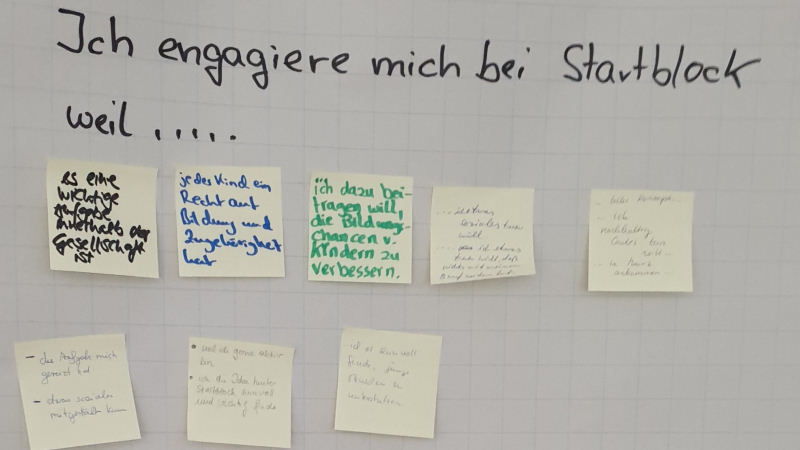 Ich engagiere mich bei Startblock
weil .....
es eine
wichtige
Aufgabe
innerhalb der
Gesellschaft
ist
jedes Kind ein
Recht auf
Bildung und
Zugehörigkeit
hat
ich dazu bei-
tragen will,
die Bildungs-
chancen v.
Kindern zu
verbessern.
... ich etwas
soziales tun
will
... ich etwas
... ich
nachhaltig
- die Aufgabe mich
gereizt hat
- etwas soziales
mitgestalten kann
• weil ich gerne aktiv
bin
• ich die Idee hinter
Startblock sinnvoll
und wichtig finde
ich es sinnvoll
finde, junge
zu
unterstützen